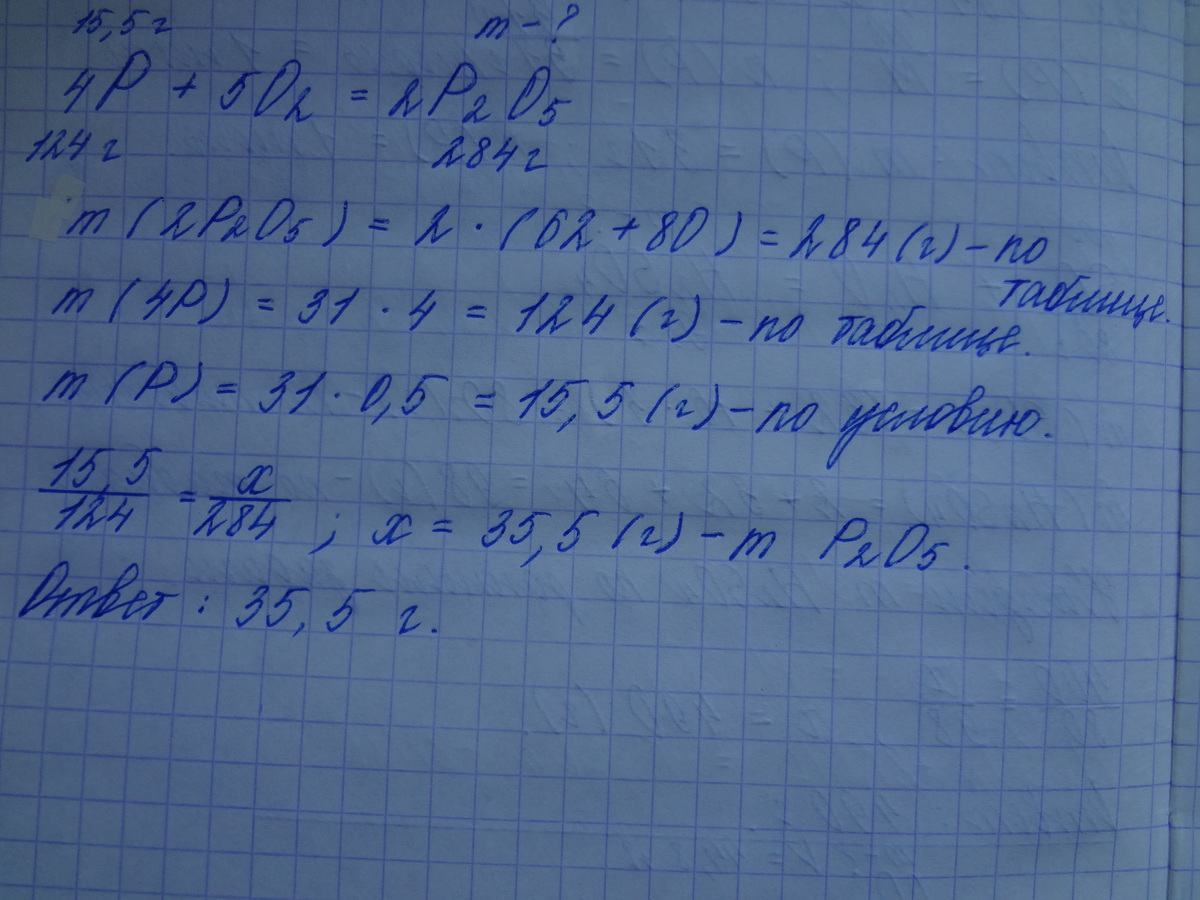 15,5 г m - ?
4P + 5O₂ = 2P₂O₅
124 г 284 г
m (2P₂O₅) = 2 · (62 + 80) = 284 (г) - по
таблице.
m (4P) = 31 · 4 = 124 (г) - по таблице.
m (P) = 31 · 0,5 = 15,5 (г) - по условию.
15,5/124 = x/284 ; x = 35,5 (г) - m P₂O₅.
Ответ: 35,5 г.